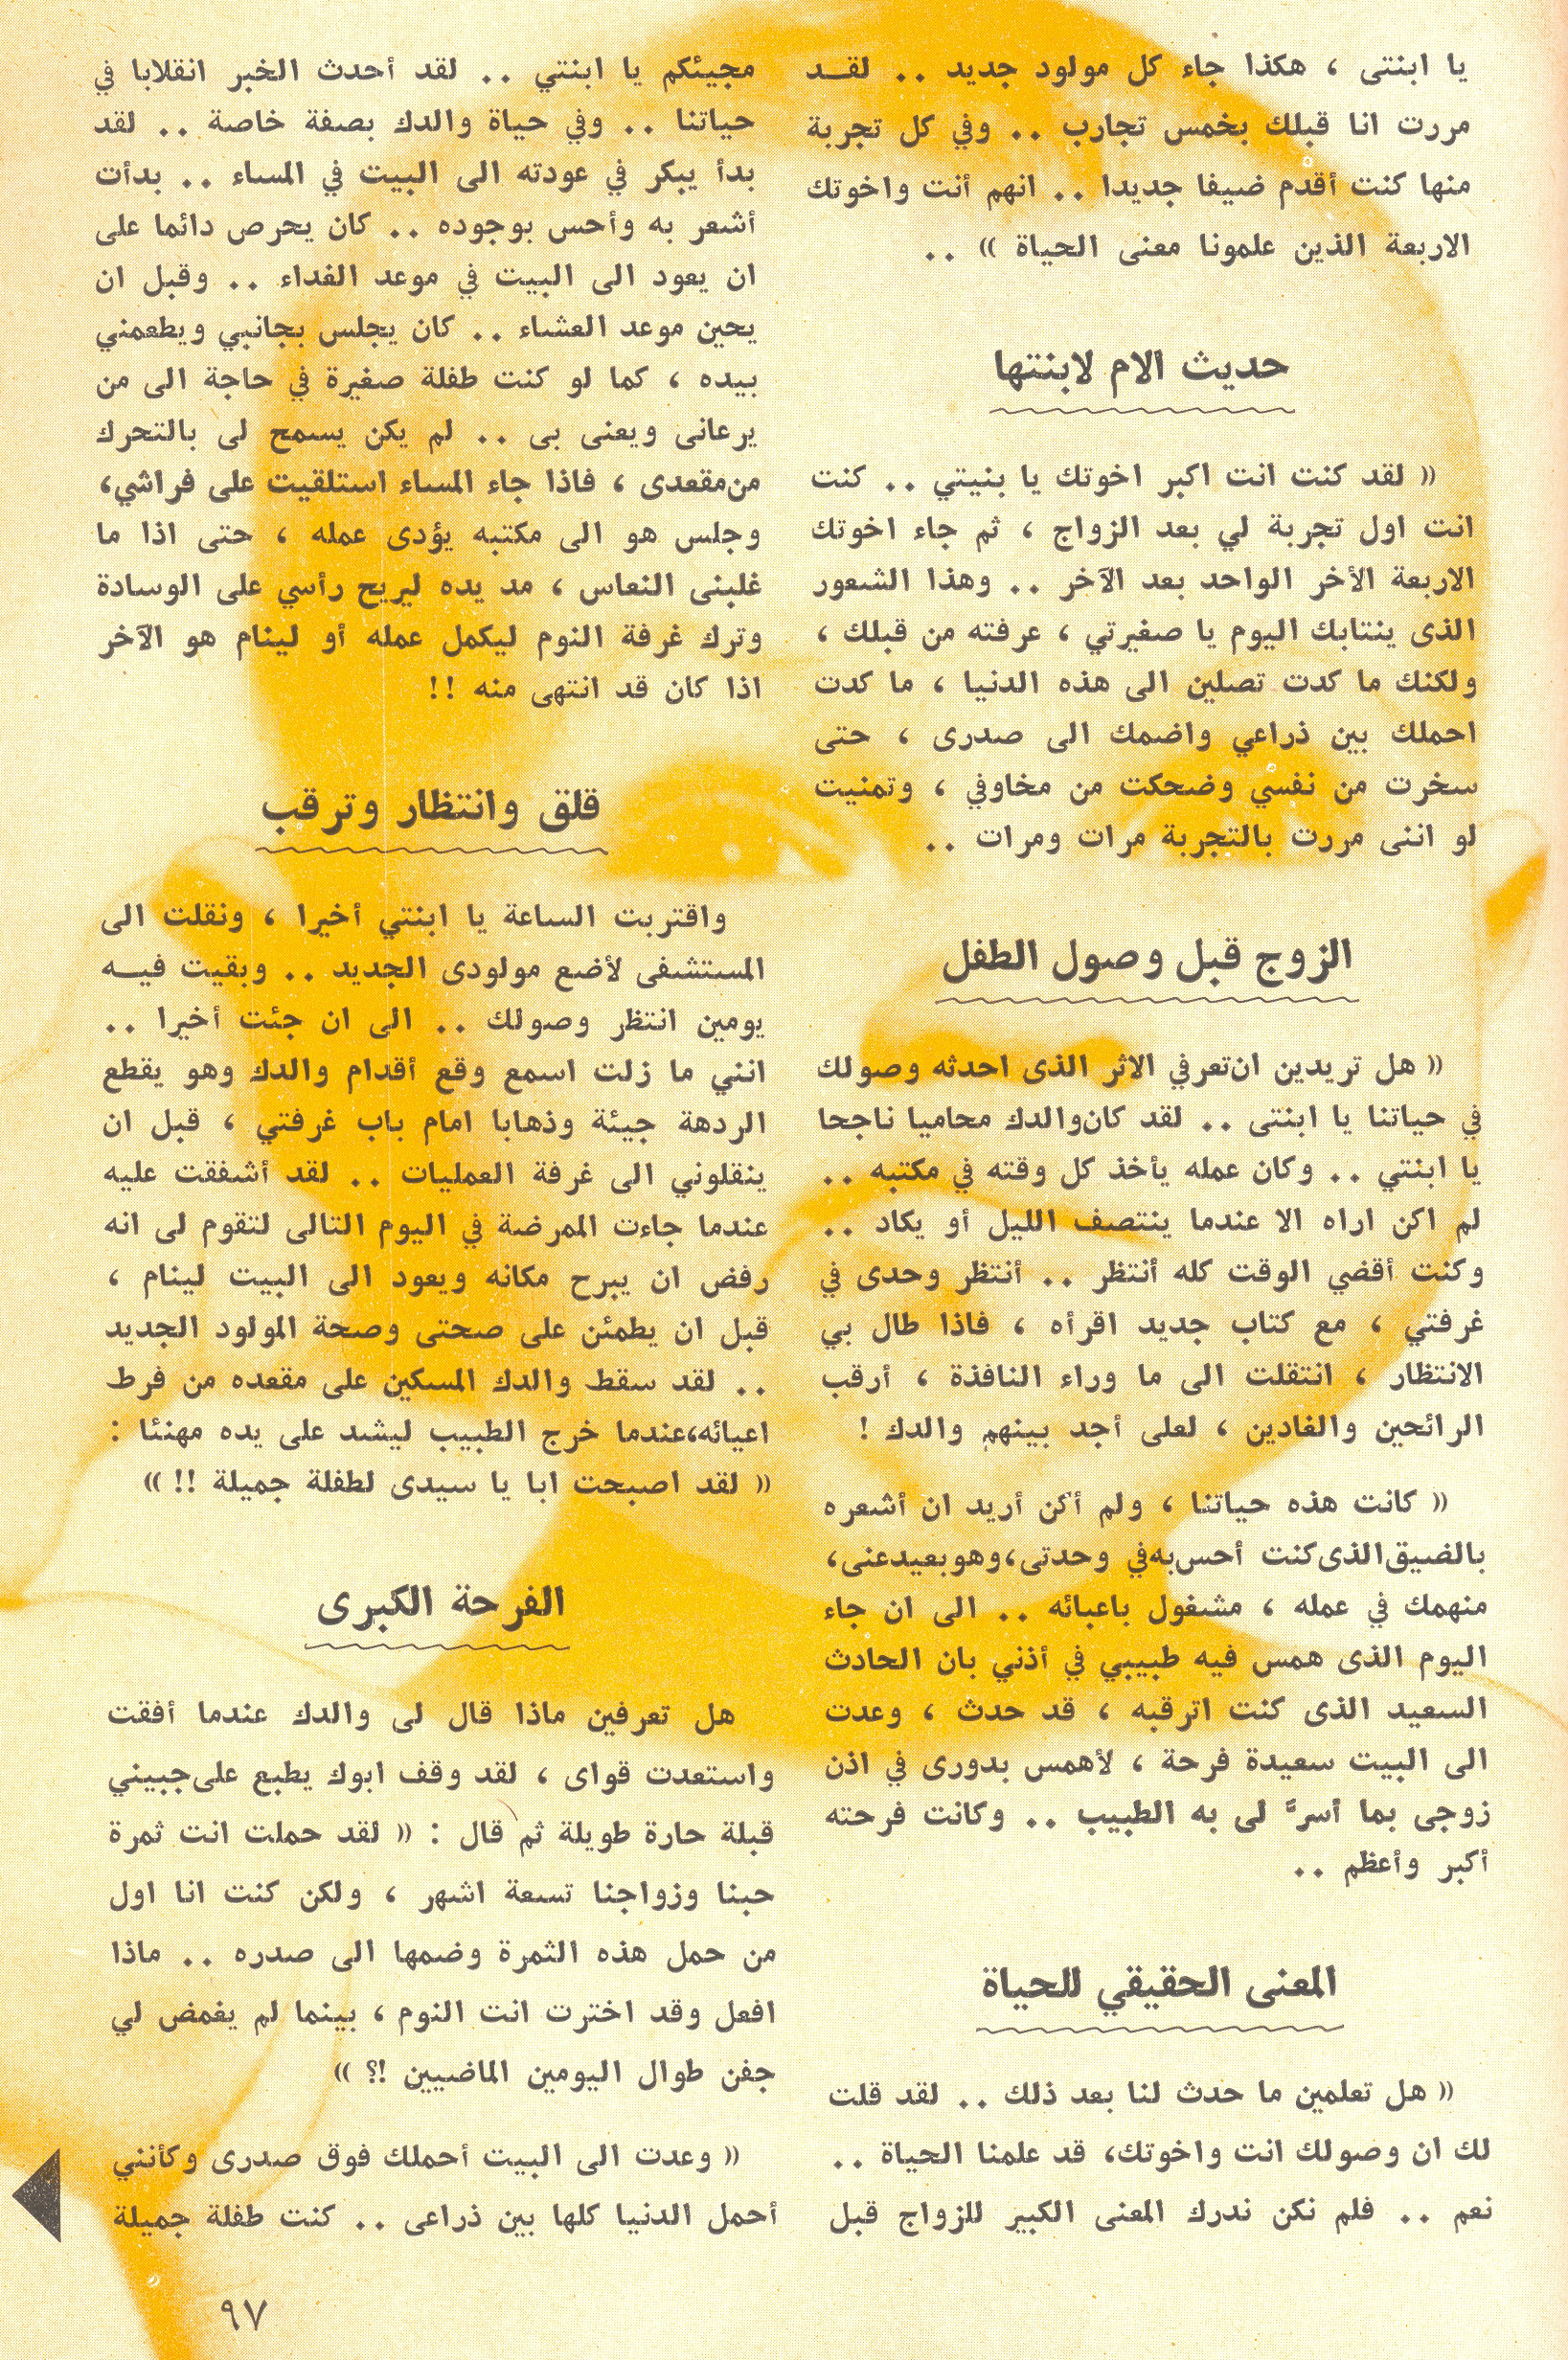 يا ابنتى ، هكذا جاء كل مولود جديد .. لقـــد
مررت انا قبلك بخمس تجارب .. وفي كل تجربة
منها كنت أقدم ضيفا جديدا .. انهم أنت واخوتك
الاربعة الذين علمونا معنى الحياة » ..
حديث الام لابنتها
« لقد كنت انت اكبر اخوتك يا بنيتي .. كنت
انت اول تجربة لي بعد الزواج ، ثم جاء اخوتك
الاربعة الأخر الواحد بعد الآخر .. وهذا الشعور
الذى ينتابك اليوم يا صغيرتي ، عرفته من قبلك ،
ولكنك ما كدت تصلين الى هذه الدنيا ، ما كدت
احملك بين ذراعي واضمك الى صدرى ، حتى
سخرت من نفسي وضحكت من مخاوفي ، وتمنيت
لو اننى مررت بالتجربة مرات ومرات ..
الزوج قبل وصول الطفل
« هل تريدين ان تعرفي الاثر الذى احدثه وصولك
في حياتنا يا ابنتى .. لقد كان والدك محاميا ناجحا
يا ابنتي .. وكان عمله يأخذ كل وقته في مكتبه ..
لم اكن اراه الا عندما ينتصف الليل أو يكاد ..
وكنت أقضي الوقت كله أنتظر .. أنتظر وحدى في
غرفتي ، مع كتاب جديد اقرأه ، فاذا طال بي
الانتظار ، انتقلت الى ما وراء النافذة ، أرقب
الرائحين والغادين ، لعلى أجد بينهم والدك !
« كانت هذه حياتنا ، ولم أكن أريد ان أشعره
بالضيق الذى كنت أحس به في وحدتى، وهو بعيد عنى،
منهمك في عمله ، مشغول باعبائه .. الى ان جاء
اليوم الذى همس فيه طبيبي في أذني بان الحادث
السعيد الذى كنت اترقبه ، قد حدث ، وعدت
الى البيت سعيدة فرحة ، لأهمس بدورى في اذن
زوجى بما أسرَّ لى به الطبيب .. وكانت فرحته
أكبر وأعظم ..
المعنى الحقيقي للحياة
« هل تعلمين ما حدث لنا بعد ذلك .. لقد قلت
لك ان وصولك انت واخوتك، قد علمنا الحياة ..
نعم .. فلم نكن ندرك المعنى الكبير للزواج قبل
مجيئكم يا ابنتي .. لقد أحدث الخبر انقلابا في
حياتنا .. وفي حياة والدك بصفة خاصة .. لقد
بدأ يبكر في عودته الى البيت في المساء .. بدأت
أشعر به وأحس بوجوده .. كان يحرص دائما على
ان يعود الى البيت في موعد الغداء .. وقبل ان
يحين موعد العشاء .. كان يجلس بجانبي ويطعمني
بيده ، كما لو كنت طفلة صغيرة في حاجة الى من
يرعانى ويعنى بى .. لم يكن يسمح لى بالتحرك
من مقعدى ، فاذا جاء المساء استلقيت على فراشي،
وجلس هو الى مكتبه يؤدى عمله ، حتى اذا ما
غلبنى النعاس ، مد يده ليريح رأسي على الوسادة
وترك غرفة النوم ليكمل عمله أو لينام هو الآخر
اذا كان قد انتهى منه !!
قلق وانتظار وترقب
واقتربت الساعة يا ابنتي أخيرا ، ونقلت الى
المستشفى لأضع مولودى الجديد .. وبقيت فيــه
يومين انتظر وصولك .. الى ان جئت أخيرا ..
انني ما زلت اسمع وقع أقدام والدك وهو يقطع
الردهة جيئة وذهابا امام باب غرفتي ، قبل ان
ينقلوني الى غرفة العمليات .. لقد أشفقت عليه
عندما جاءت الممرضة في اليوم التالى لتقوم لى انه
رفض ان يبرح مكانه ويعود الى البيت لينام ،
قبل ان يطمئن على صحتى وصحة المولود الجديد
.. لقد سقط والدك المسكين على مقعده من فرط
اعيائه، عندما خرج الطبيب ليشد على يده مهنئا :
« لقد اصبحت ابا يا سيدى لطفلة جميلة !! »
الفرحة الكبرى
هل تعرفين ماذا قال لى والدك عندما أفقت
واستعدت قواى ، لقد وقف ابوك يطبع على جبيني
قبلة حارة طويلة ثم قال : « لقد حملت انت ثمرة
حبنا وزواجنا تسعة اشهر ، ولكن كنت انا اول
من حمل هذه الثمرة وضمها الى صدره .. ماذا
افعل وقد اخترت انت النوم ، بينما لم يغمض لي
جفن طوال اليومين الماضيين !؟ »
« وعدت الى البيت أحملك فوق صدرى وكأنني
أحمل الدنيا كلها بين ذراعى .. كنت طفلة جميلة
٩٧